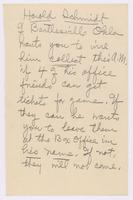 Harold Schmidt
of Bartlesville Okla
wants you to wire
him collect this A.M.
if 4 of his office
friends can get
tickets to game. If
they can he wants
you to leave them
at the Box Office in
his name. If not,
they will not come.